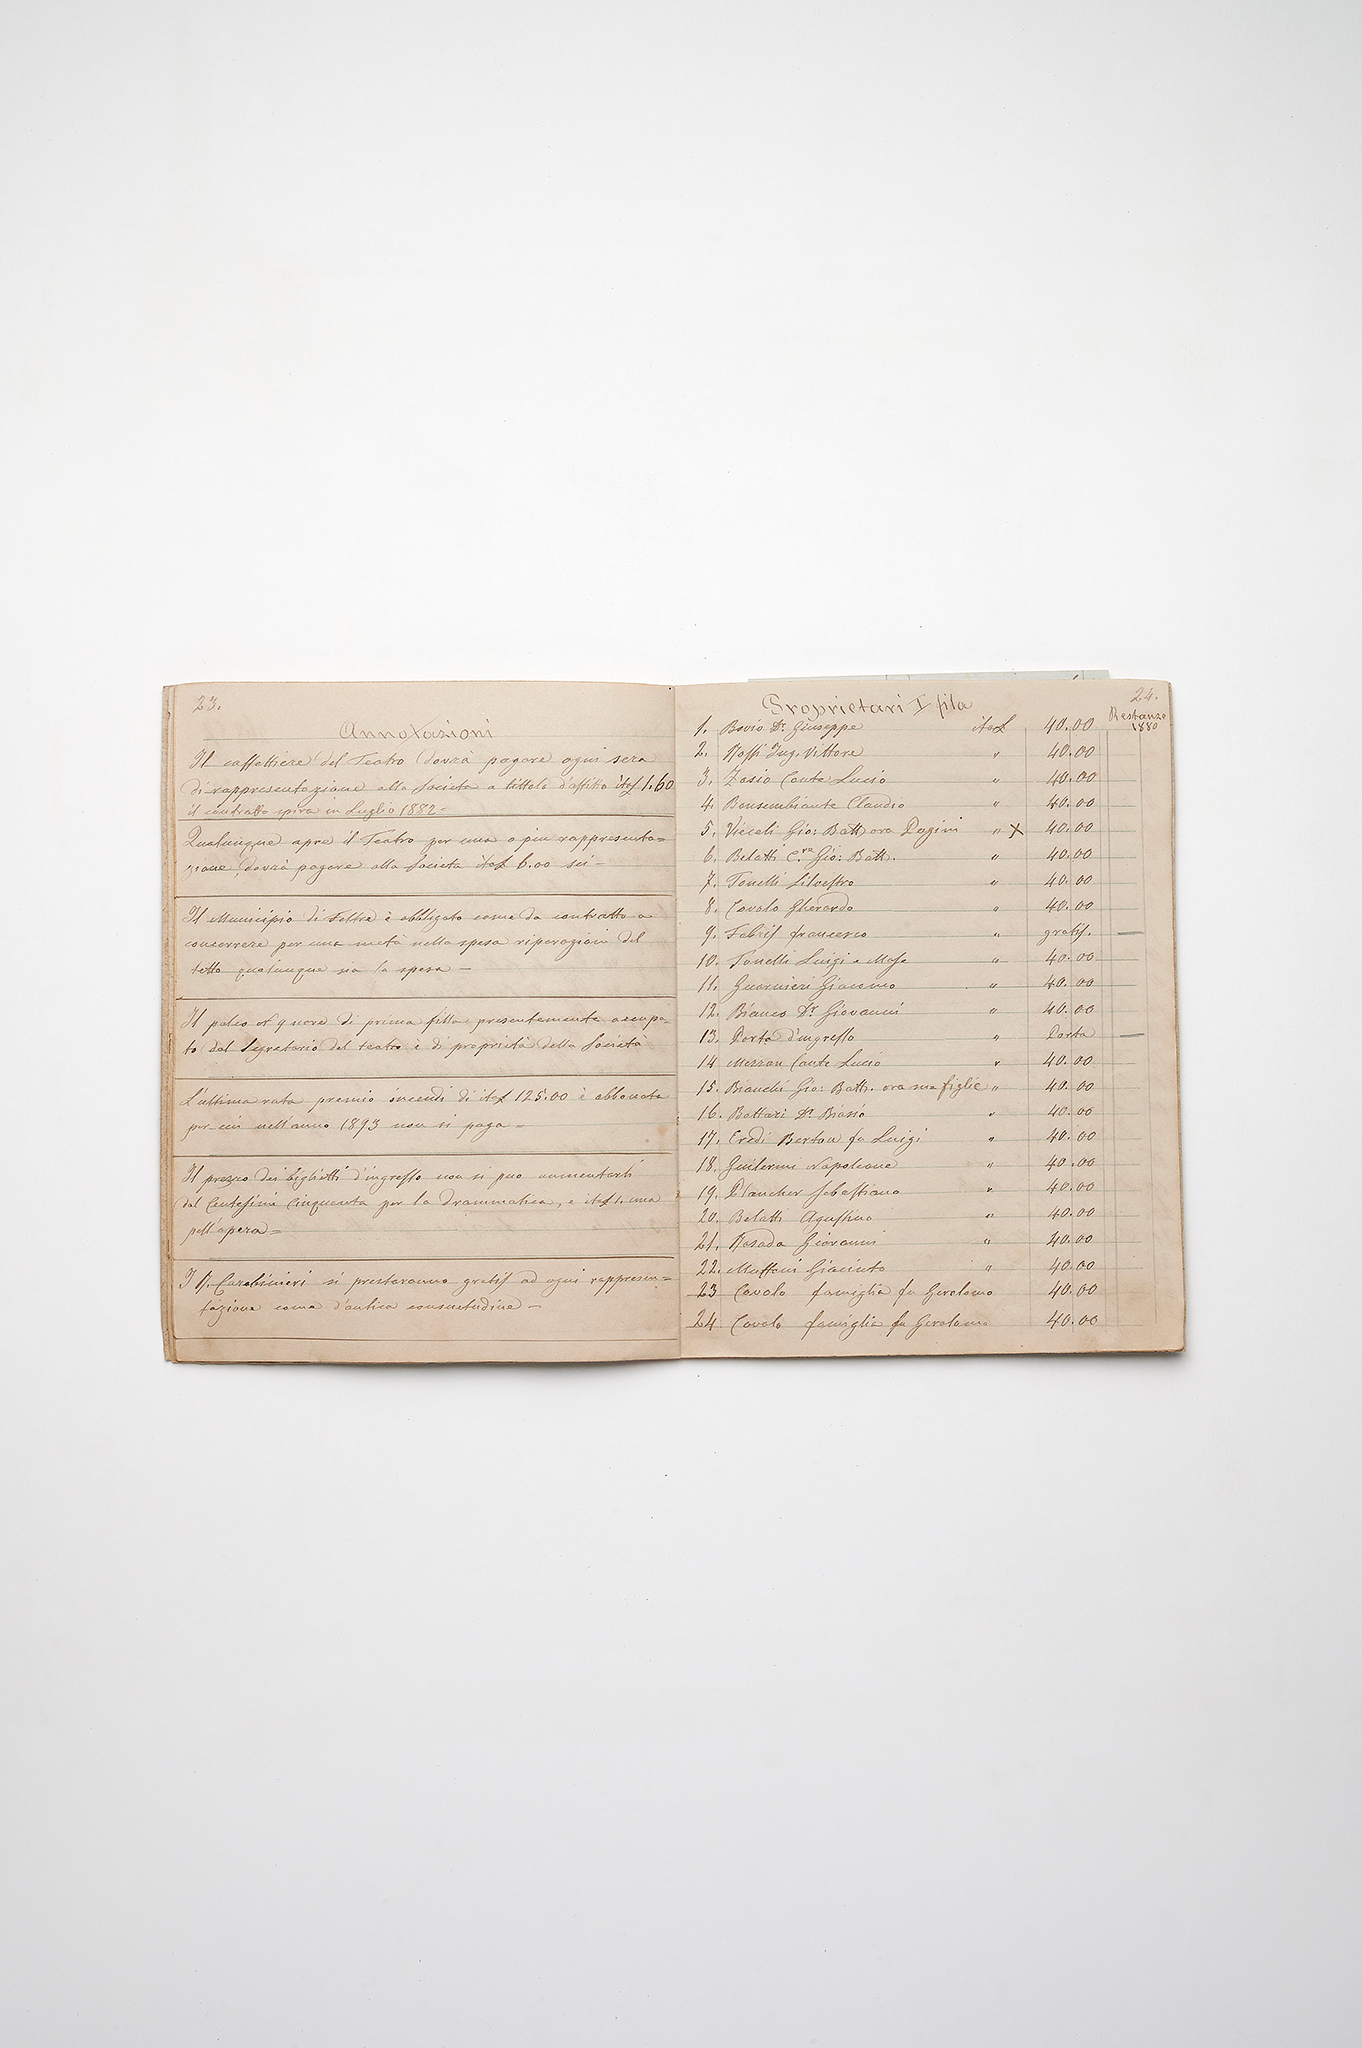 23.
Annotazioni
Il caffettiere del Teatro dovrà pagare ogni sera
di rappresentazione alla Società a tittolo d'affitto it£ 1.60
il contratto spira in Luglio 1882 =
Qualunque apre il Teatro per una o piu rappresenta=
zione, dovrà pagare alla Società it£ 6.00 sei -
Il Municipio di Feltre è obbligato come da contratto a
concorrere per una metà nella spesa riparazioni del
tetto qualunque sia la spesa -
Il palco N. 9 nove di prima filla presentemente occupa-
to dal Segretario del teatro è di proprietà della Società
L'ultima rata premio incendi di it£ 125.00 è abbonata
per cui nell'anno 1893 non si paga =
Il prezzo dei biglietti d'ingresso non si puo aumentarli
dal Centesimi Cinquanta per la Drammatica, e it£ 1. una
pell'opera =
I R. Carabinieri si prestaranno gratis ad ogni rappresen=
tazione come d'antica consuetudine -
24.
Proprietari I fila
Restanze
1880
1. Bovio Dr. Giuseppe it£ 40.00
2. Rossi Ing. Vittore " 40.00
3. Zasio Conte Lucio " 40.00
4. Bonsembiante Claudio " 40.00
5. Vieceli Gio: Batt ora Pagini " X 40.00
6. Belatti C.re Gio: Batt. " 40.00
7. Tonelli Silvestro " 40.00
8. Cavalo Gherardo " 40.00
9. Fabris francesco " gratis. —
10. Tonelli Luigi e Mosè " 40.00
11. Guarnieri Giacomo " 40.00
12. Bianco Dr Giovanni " 40.00
13. Porta d'ingresso " Porta —
14 Mezzan Conte Lucio " 40.00
15. Bianchi Gio: Batt. ora sua figlie " 40.00
16. Bottari Dr. Biasio " 40.00
17. Eredi Berton fu Luigi " 40.00
18. Guilermi Napoleone " 40.00
19. Plancher Sebastiano " 40.00
20. Belatti Agostino " 40.00
21. Rosada Giovanni " 40.00
22. Muffoni Giacinto " 40.00
23 Cavalo famiglia fu Gerolamo 40.00
24 Cavalo famiglia fu Gerolamo 40.00